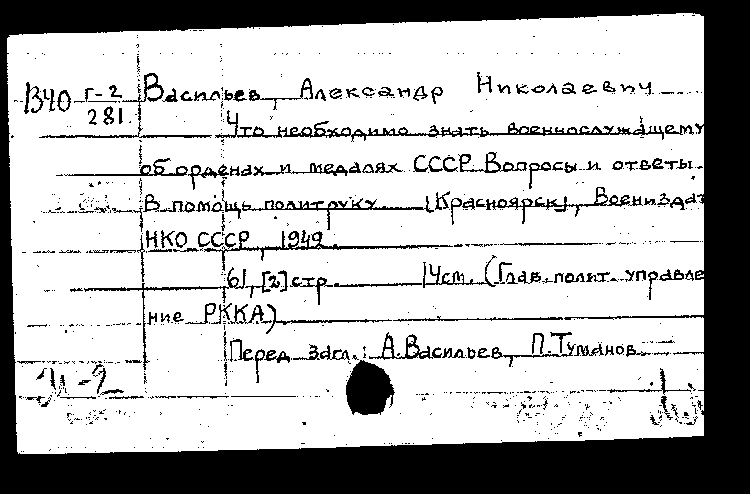 ВЧО Г-2 Васильев, Александр Николаевич
281 Что необходимо знать военнослужащему
об орденах и медалях СССР. Вопросы и ответы.
В помощь политруку. [Красноярск], Воениздат
НКО СССР, 1942.
61, [2] стр. 14см. (Глав. полит. управле
ние РККА).
Перед загл.: А. Васильев, П. Туманов.
И-2